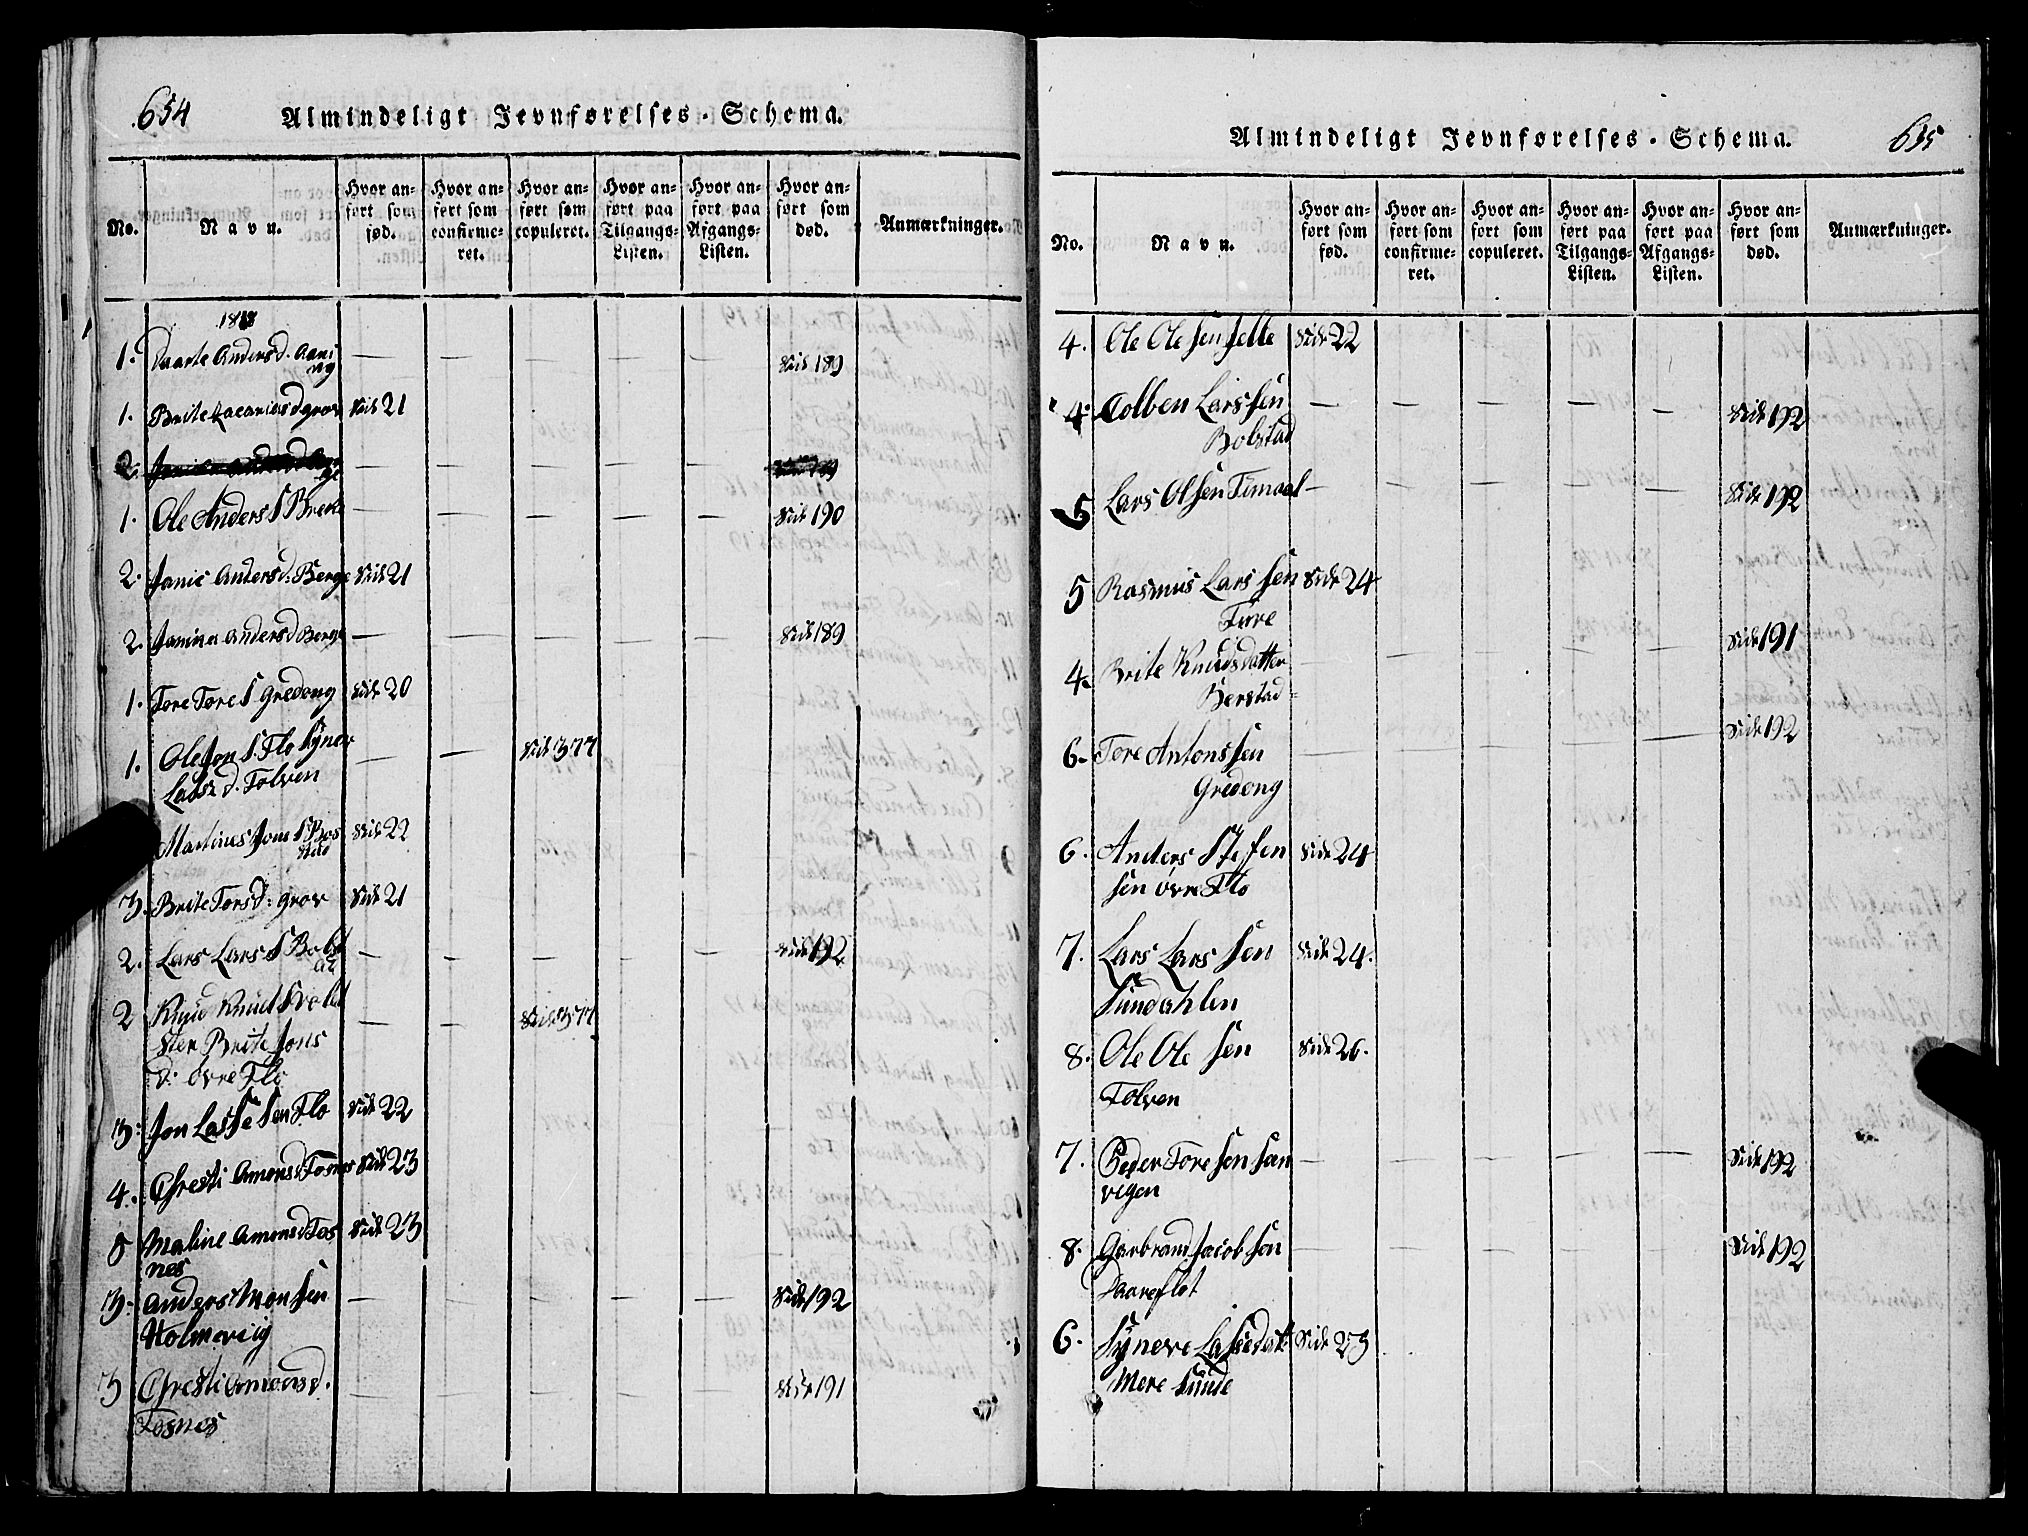 654
Almindeligt Jevnførelses-Schema.
No.
Navn.
Hvor anført som fød.
Hvor anført som confirmeret.
Hvor anført som copuleret.
Hvor anført paa Tilgangs-Listen.
Hvor anført paa Afgangs-Listen.
Hvor anført som død.
Anmærkninger.
1. Daarte Anders d. Aani — — — — — Side 189
ng
1. Brite Zacarias d grov Side 21
2. — — — — — 189
1. Ole Anders S Breke — — — — — Side 190
2. Janic Anders d: Berge Side 21
2. Jamina Anders d Berge — — — — — Side 189
1. Tore Tore S Gredong Side 20
1. Ole Jon S. Flo Syner — — Side 377
Lasse d. Tolven
Martines Jons S Bos Side 22
stad
3. Brite Tors d: grov Side 21
2. Lars Lars S Bolst — — — — — Side 192
ad
2 Knud Knud S — — Side 377
Brite Jons
d: øvre Flo
3: Jon Lasse Sen Flo Side 22
4. Chresti Amons d: Tosnes Side 23
5 Maline Amons d Tos Side 23
nes
3. Anders Monsen — — — — — Side 192
Holmevig
3 Chresti Amons d. — — — — — Side 191
Tosnes
Almindeligt Jevnførelses-Schema.
655
No.
Navn.
Hvor anført som fød.
Hvor anført som confirmeret.
Hvor anført som copuleret.
Hvor anført paa Tilgangs-Listen.
Hvor anført paa Afgangs-Listen.
Hvor anført som død.
Anmærkninger.
4. Ole Olesen Selle Side 22
4. Colben Larssen — — — — — Side 192
Bolstad
5 Lars Olsen Timaal — — — — — Side 192
5 Rasmus Larssen Side 24
Ture
4. Brite Knudsdatter — — — — — Side 191
Berstad
6. Tore Antonssen — — — — — Side 192
Gredong
6. Anders Steffen Side 24
sen øvre Flo
7. Lars Larssen Side 24.
Sundahlen
8. Ole Olesen Side 26.
Tolven
7. Peder Toresen San — — — — — Side 192
vigen
8. Garbrand Jacobsen — — — — — Side 192
Daareflot
6. Syneve Lassedatt Side 23
Mere Sunde